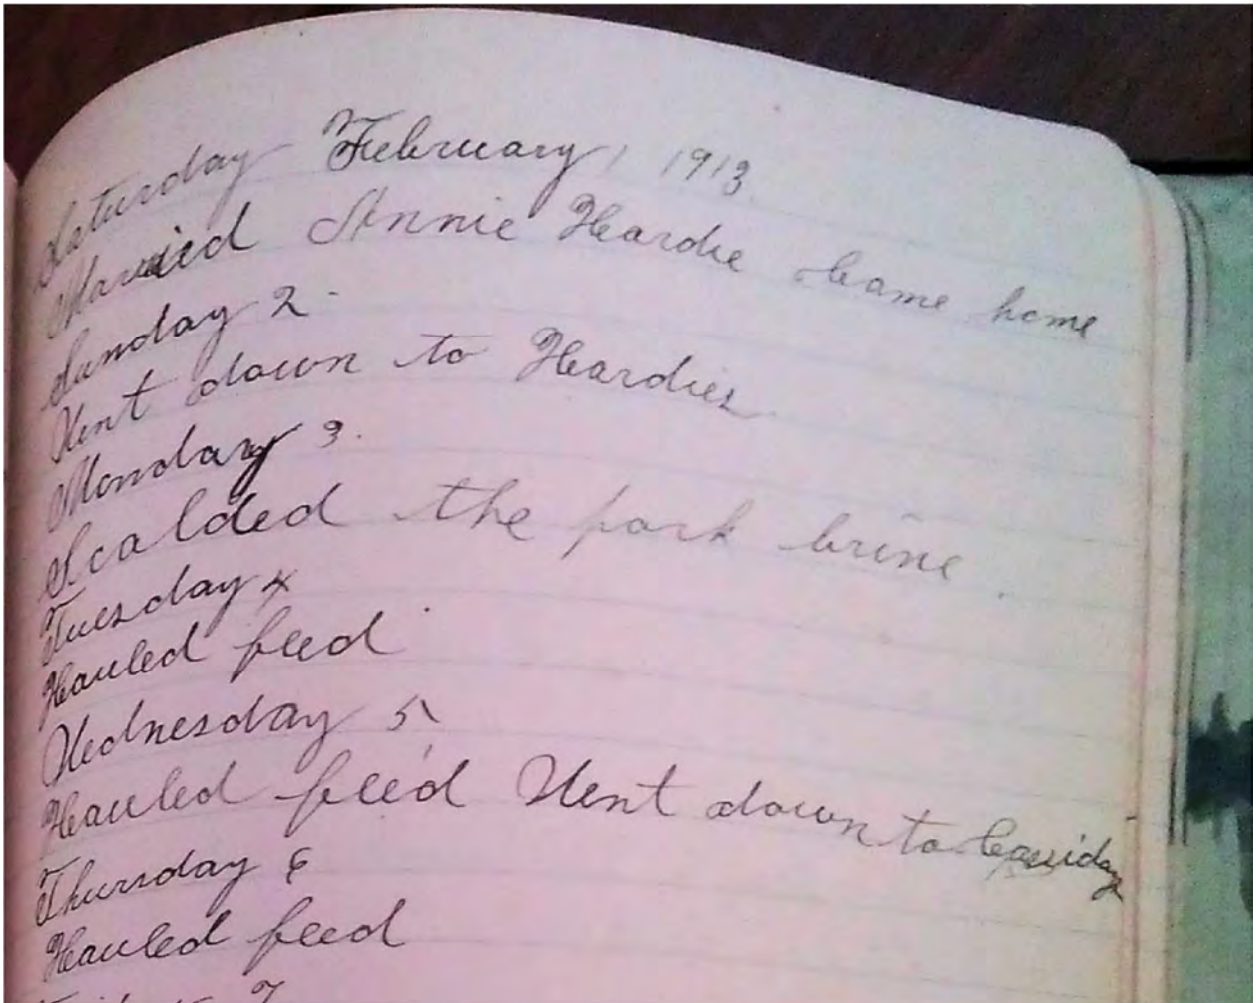 Saturday February 1 1913
Married Annie Heardie Came home
Sunday 2
Went down to Heardies
Monday 3.
Scalded the pork brine
Tuesday 4
Hauled feed
Wednesday 5
Hauled feed Went down to
Thursday 6
Hauled feed
7